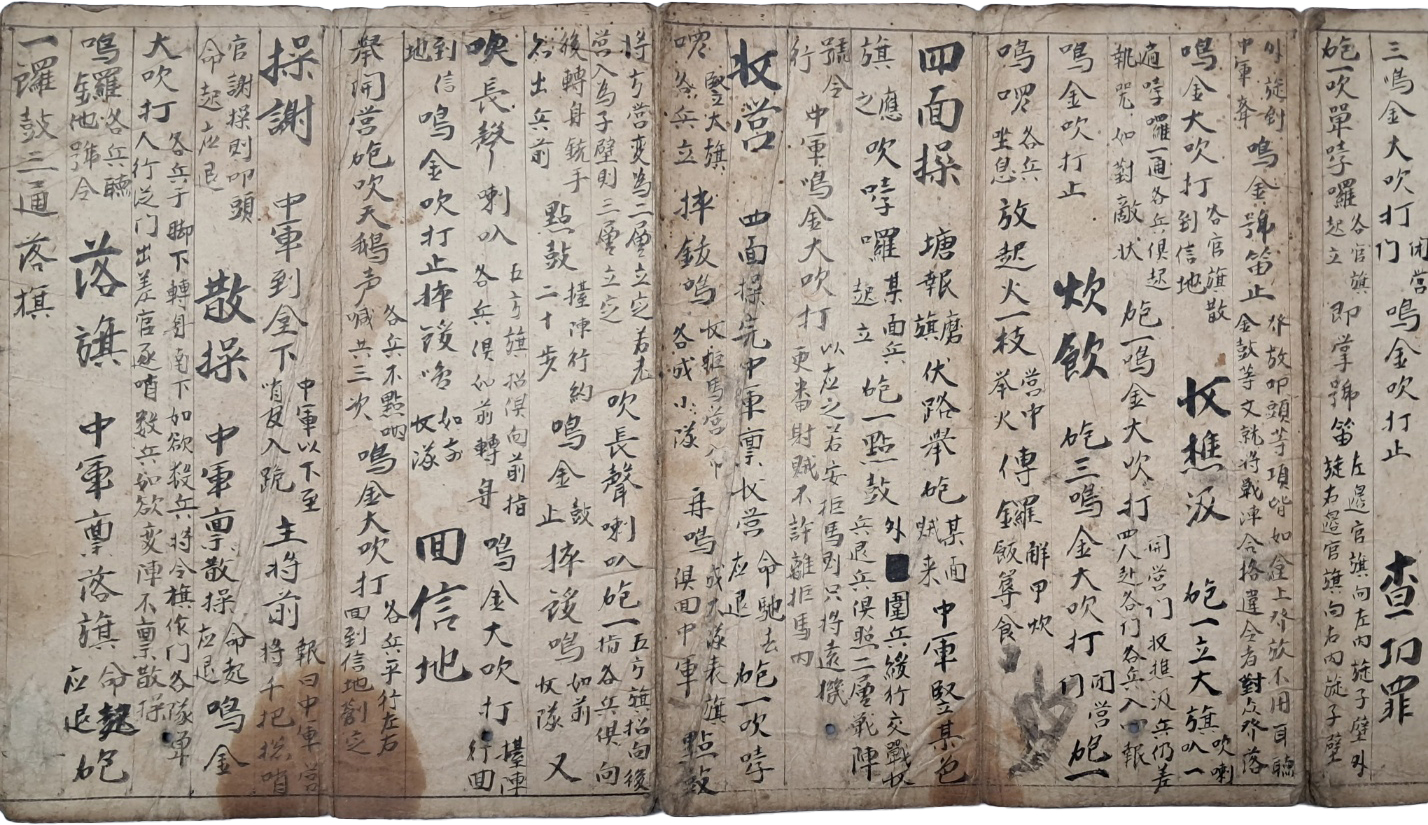 三鳴金大吹打閉營门鳴金吹打止 查功罪
砲一吹單哱囉各官旗起立即掌號笛左邉官旗向左內旋子壁外旋右邉官旗向右內旋子壁
外旋劄中軍牽鳴金號笛止發放叩頭等項皆如金上發放不用耳聽金鼓等文就將戰陣合格違令者對众發落
鳴金大吹打各官旗散到信地 收樵汲 砲一立大旗吹喇叭一
遍哱囉一通各兵俱起執咒如對敵狀砲一鳴金大吹打開营门收樵汲兵仍差四人赴各门各兵入口報
鳴金吹打止 炊飲 砲三鳴金大吹打閉营门砲一
鳴啰各兵坐息放起火一枝营中举火傳鑼解甲炊飯尊食
四面操 塘報磨旗伏路举砲某面賊来中軍竪某色
旗應之吹哱囉某面兵起立砲一點鼓外圍兵緩行交戰收兵退兵俱照二層戰陣
號令行中軍鳴金大吹打以应之若安拒馬則只将遠機更番財賊不許離拒馬内
收营 四面操完中軍禀收营命馳去应退砲一吹哱
啰竪大旗各兵立摔鈸鳴收拒馬营各成小隊再鳴成大隊表旗俱回中軍點鼓
將方营变為二層立定若先营入為子壁則三層立定吹長聲喇叭砲一五方旗招向後指各兵俱向
後轉身銃手俱出兵前點鼓二十步擡陣行約鳴金鼓止摔鈸鳴如前收隊又
吹長聲喇叭五方旗招俱向前指各兵俱如前轉身鳴金大吹打擡陣行回
到信地鳴金吹打止摔鈸鳴如前收隊 回信地
举開营砲吹天鵝声各兵不點吶喊共三次鳴金大吹打各兵平行左右面到信地劄定
操謝 中軍到金下中軍以下至哨長入跪主将前報曰中軍营将千把捴哨
官謝操則叩頭命起应退 散操 中軍禀散操命起应退鳴金
大吹打各兵于脚下轉身南下如欲殺兵将令旗作门各隊單人行從门出差官逐哨殺兵如欲变陣不禀散操
鳴鑼各兵聽他號令 落旗 中軍禀落旗命起应退砲
一鑼鼓三通落旗